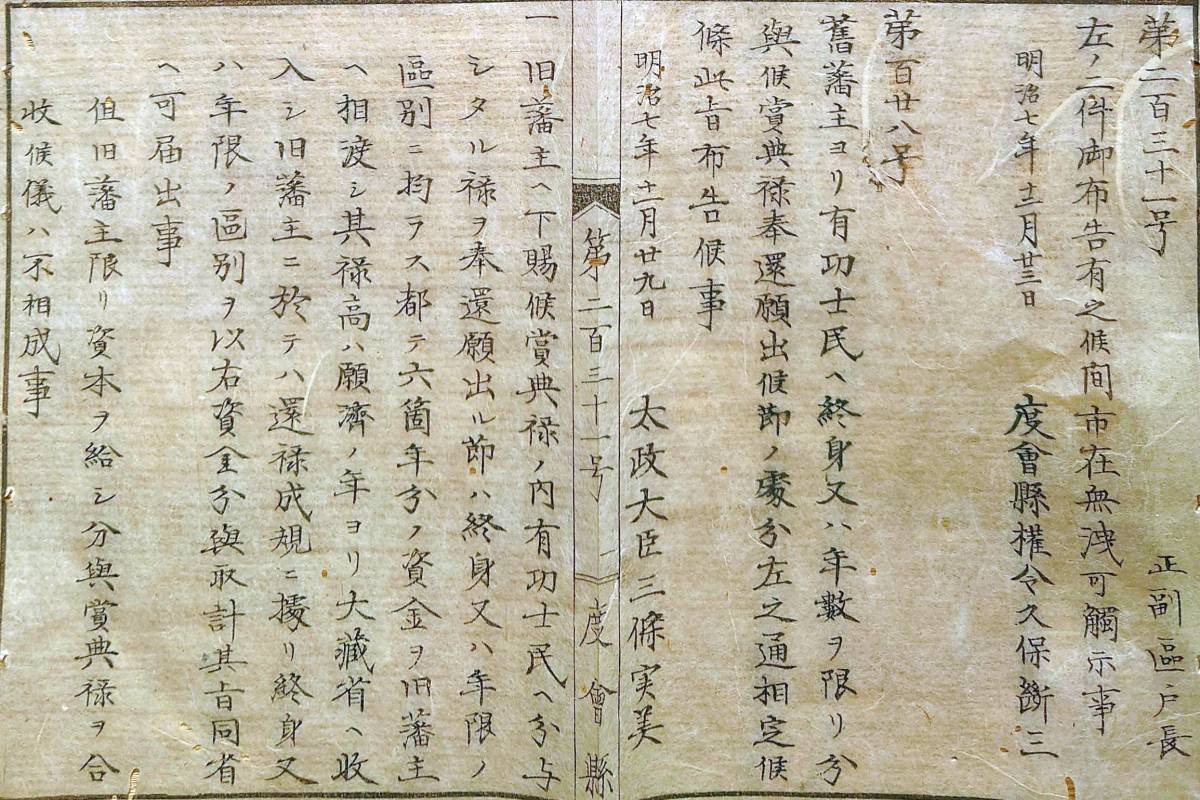 第二百三十一号
正副區戸長
左ノ二件御布告有之候間市在無洩可觸示事
明治七年十二月廿三日
度會縣權令久保斷三
第百廿八号
舊藩主ヨリ有功士民ヘ終身又ハ年數ヲ限リ分
與候賞典禄奉還願出候節ノ處分左之通相定候
條此旨布告候事
明治七年十一月廿九日
太政大臣三條実美
第二百三十一号
一
度會縣
一旧藩主ヘ下賜候賞典禄ノ内有功士民ヘ分与
シタル禄ヲ奉還願出ル節ハ終身又ハ年限ノ
區別ニ拘ラス都テ六箇年分ノ資金ヲ旧藩主
ヘ相渡シ其禄高ハ願濟ノ年ヨリ大藏省ヘ收
入シ旧藩主ニ於テハ還禄成規ニ據リ終身又
ハ年限ノ區別ヲ以右資金分與取計其旨同省
ヘ可届出事
但旧藩主限リ資本ヲ給シ分與賞典禄ヲ合
收候儀ハ不相成事